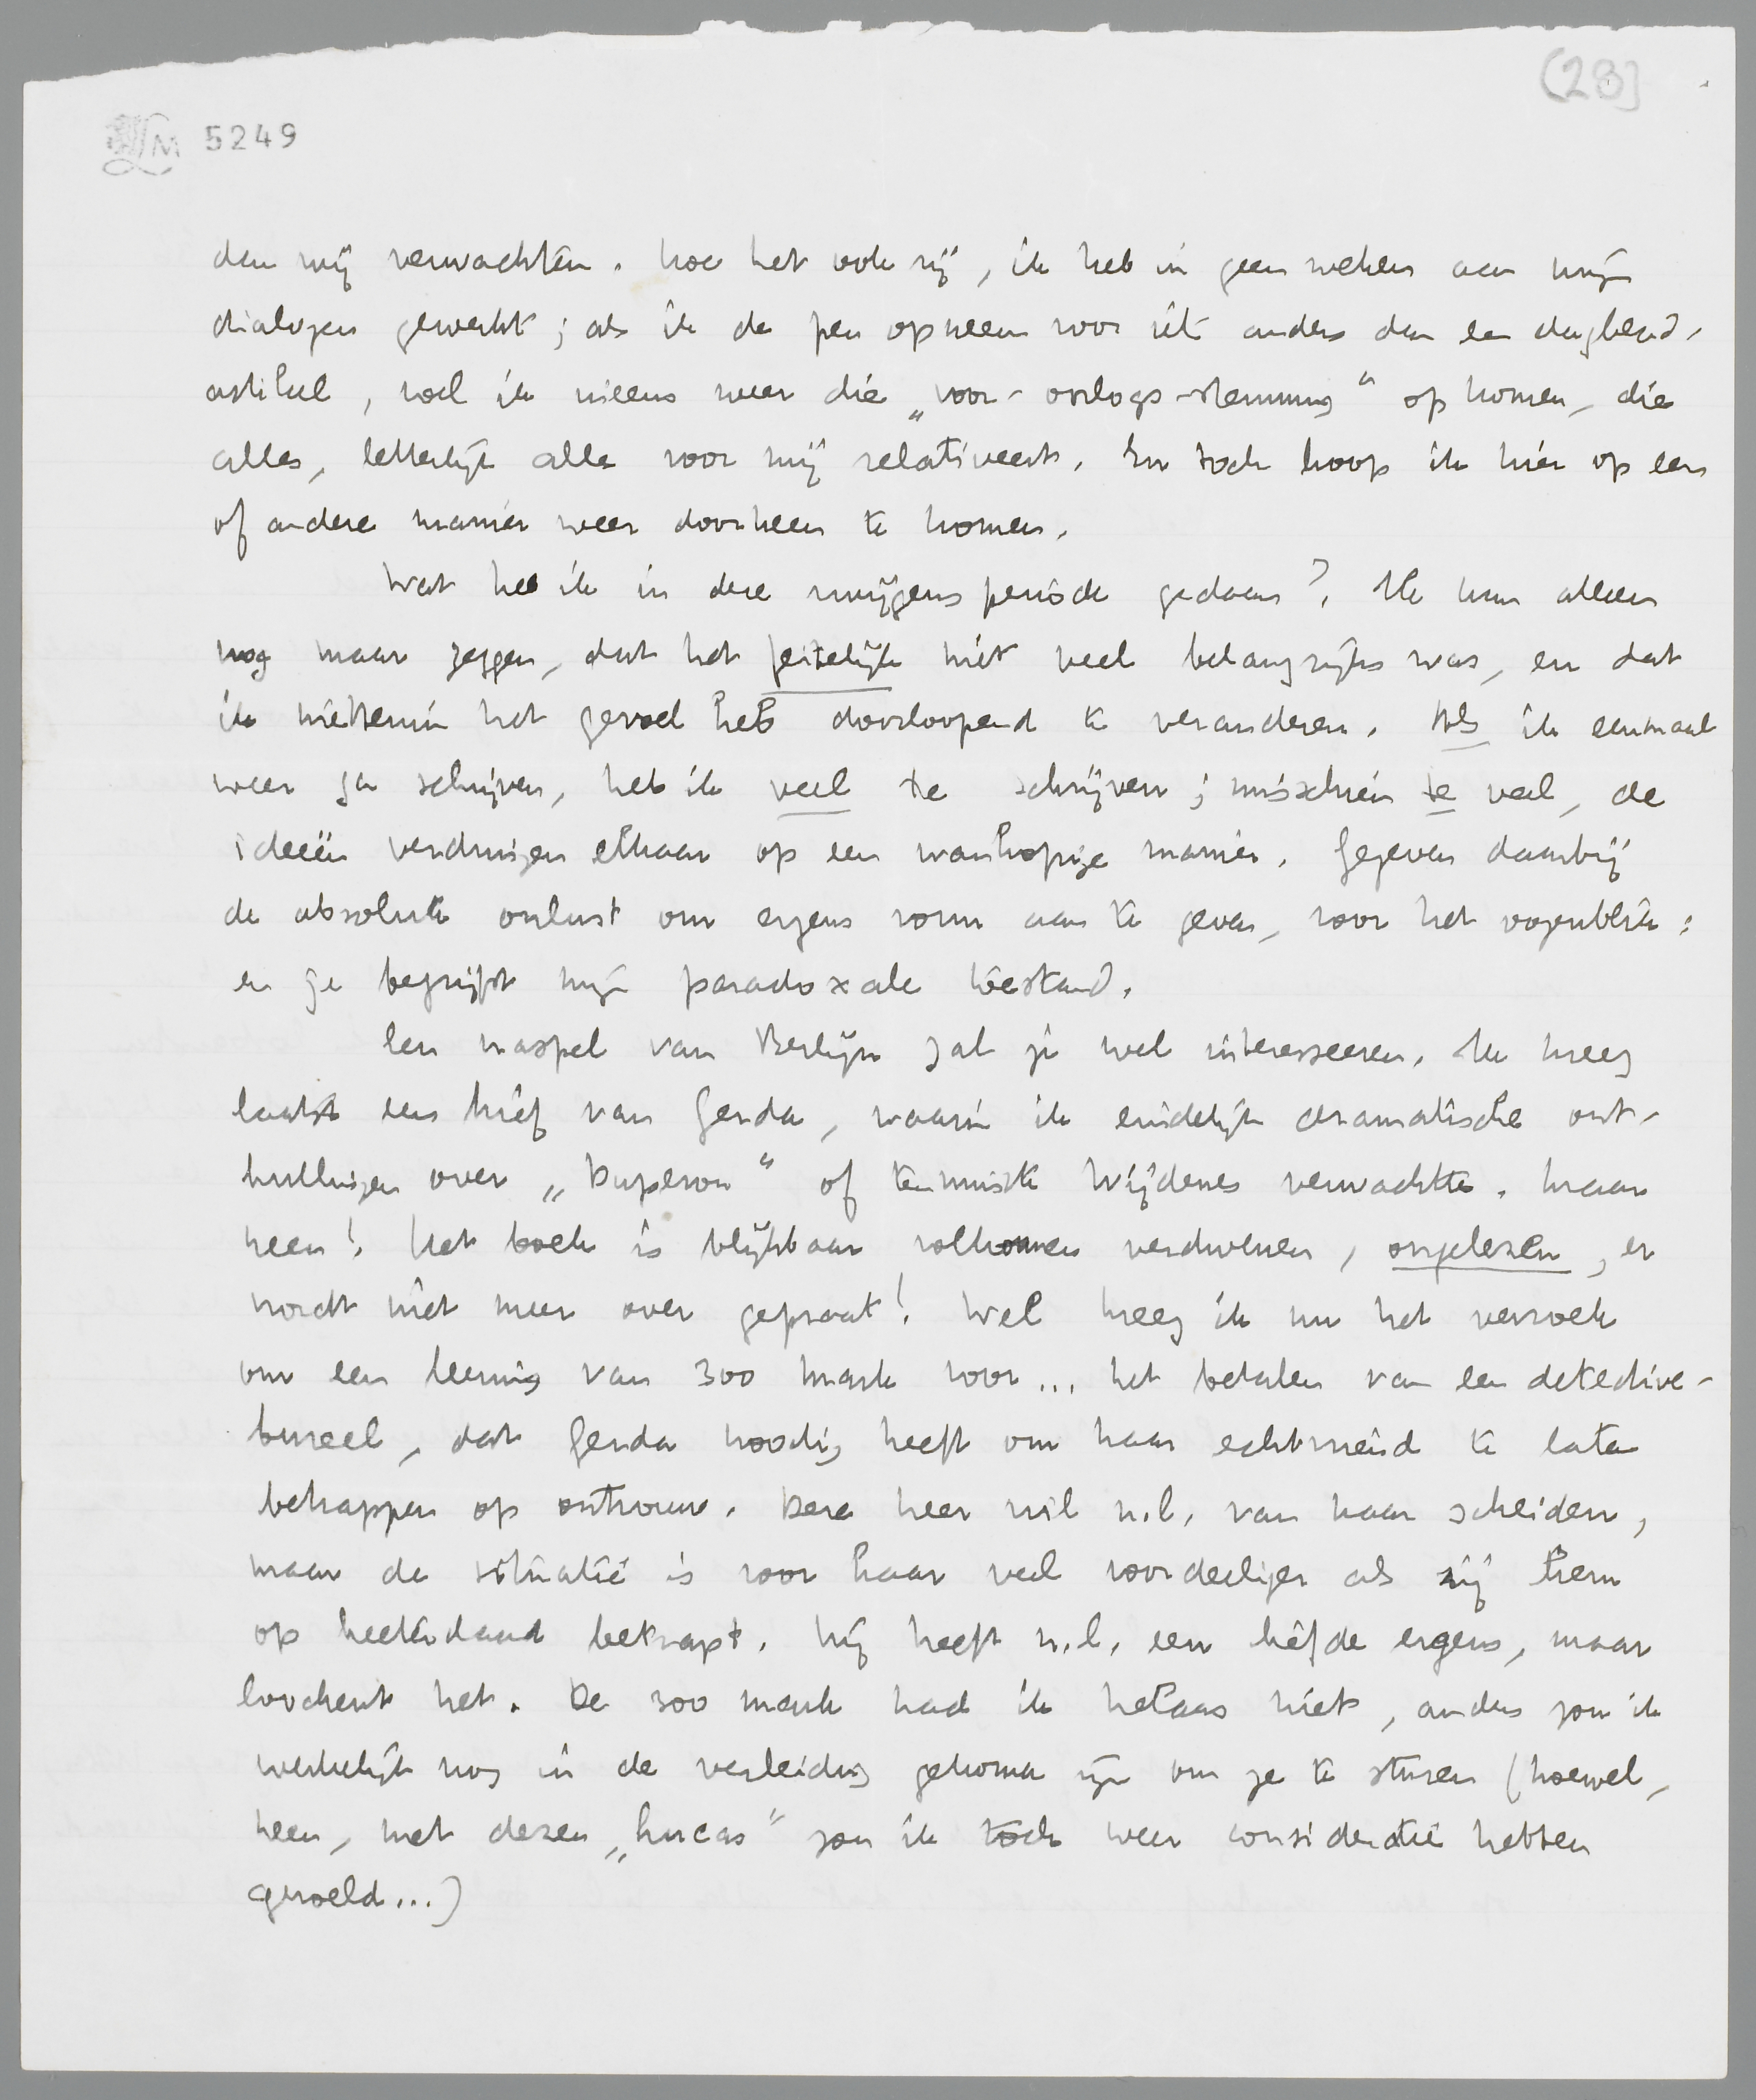 (23)
LM 5249
dan mij verwachten. Hoe het ook zij, ik heb in geen weken aan mijn
dialogen gewerkt; als ik de pen opneem voor iets anders dan een dagblad-
artikel, voel ik ineens weer die „voor-oorlogs-stemming" op komen, die
alles, letterlijk alles voor mij relativeert. En toch hoop ik hier op een
of andere manier weer doorheen te komen.
Wat heb ik in deze zwijgensperiode gedaan? Ik kan alleen
nog maar zeggen, dat het feitelijk niet veel belangrijks was, en dat
ik niettemin het gevoel heb doorloopend te veranderen. Als ik eenmaal
weer ga schrijven, heb ik veel te schrijven; misschien te veel, de
ideeën verdringen elkaar op een wanhopige manier. Gegeven daarbij
de absolute onlust om ergens vorm aan te geven, voor het oogenblik:
en je begrijpt mijn paradoxale toestand.
Een naspel van Berlijn zal je wel interesseeren. Ik kreeg
laatst een brief van Gerda, waarin ik eindelijk dramatische ont-
hullingen over „Duperou" of tenminste Wijdenes verwachtte. Maar
neen! Het boek is blijkbaar volkomen verdwenen, ongelezen, er
wordt niet meer over gepraat! Wel kreeg ik nu het verzoek
om een leening van 300 mark voor... het betalen van een detective-
bureel, dat Gerda noodig heeft om haar echtvriend te laten
betrappen op ontrouw. Deze heer wil n.l. van haar scheiden,
maar de situatie is voor haar veel voordeeliger als zij hem
op heeterdaad betrapt. Hij heeft n.l. een liefde ergens, maar
loochent het. De 300 mark had ik helaas niet, anders zou ik
werkelijk nog in de verleiding gekomen zijn om ze te sturen (hoewel,
neen, met dezen „Lucas" zou ik toch weer consideratie hebben
gevoeld...)